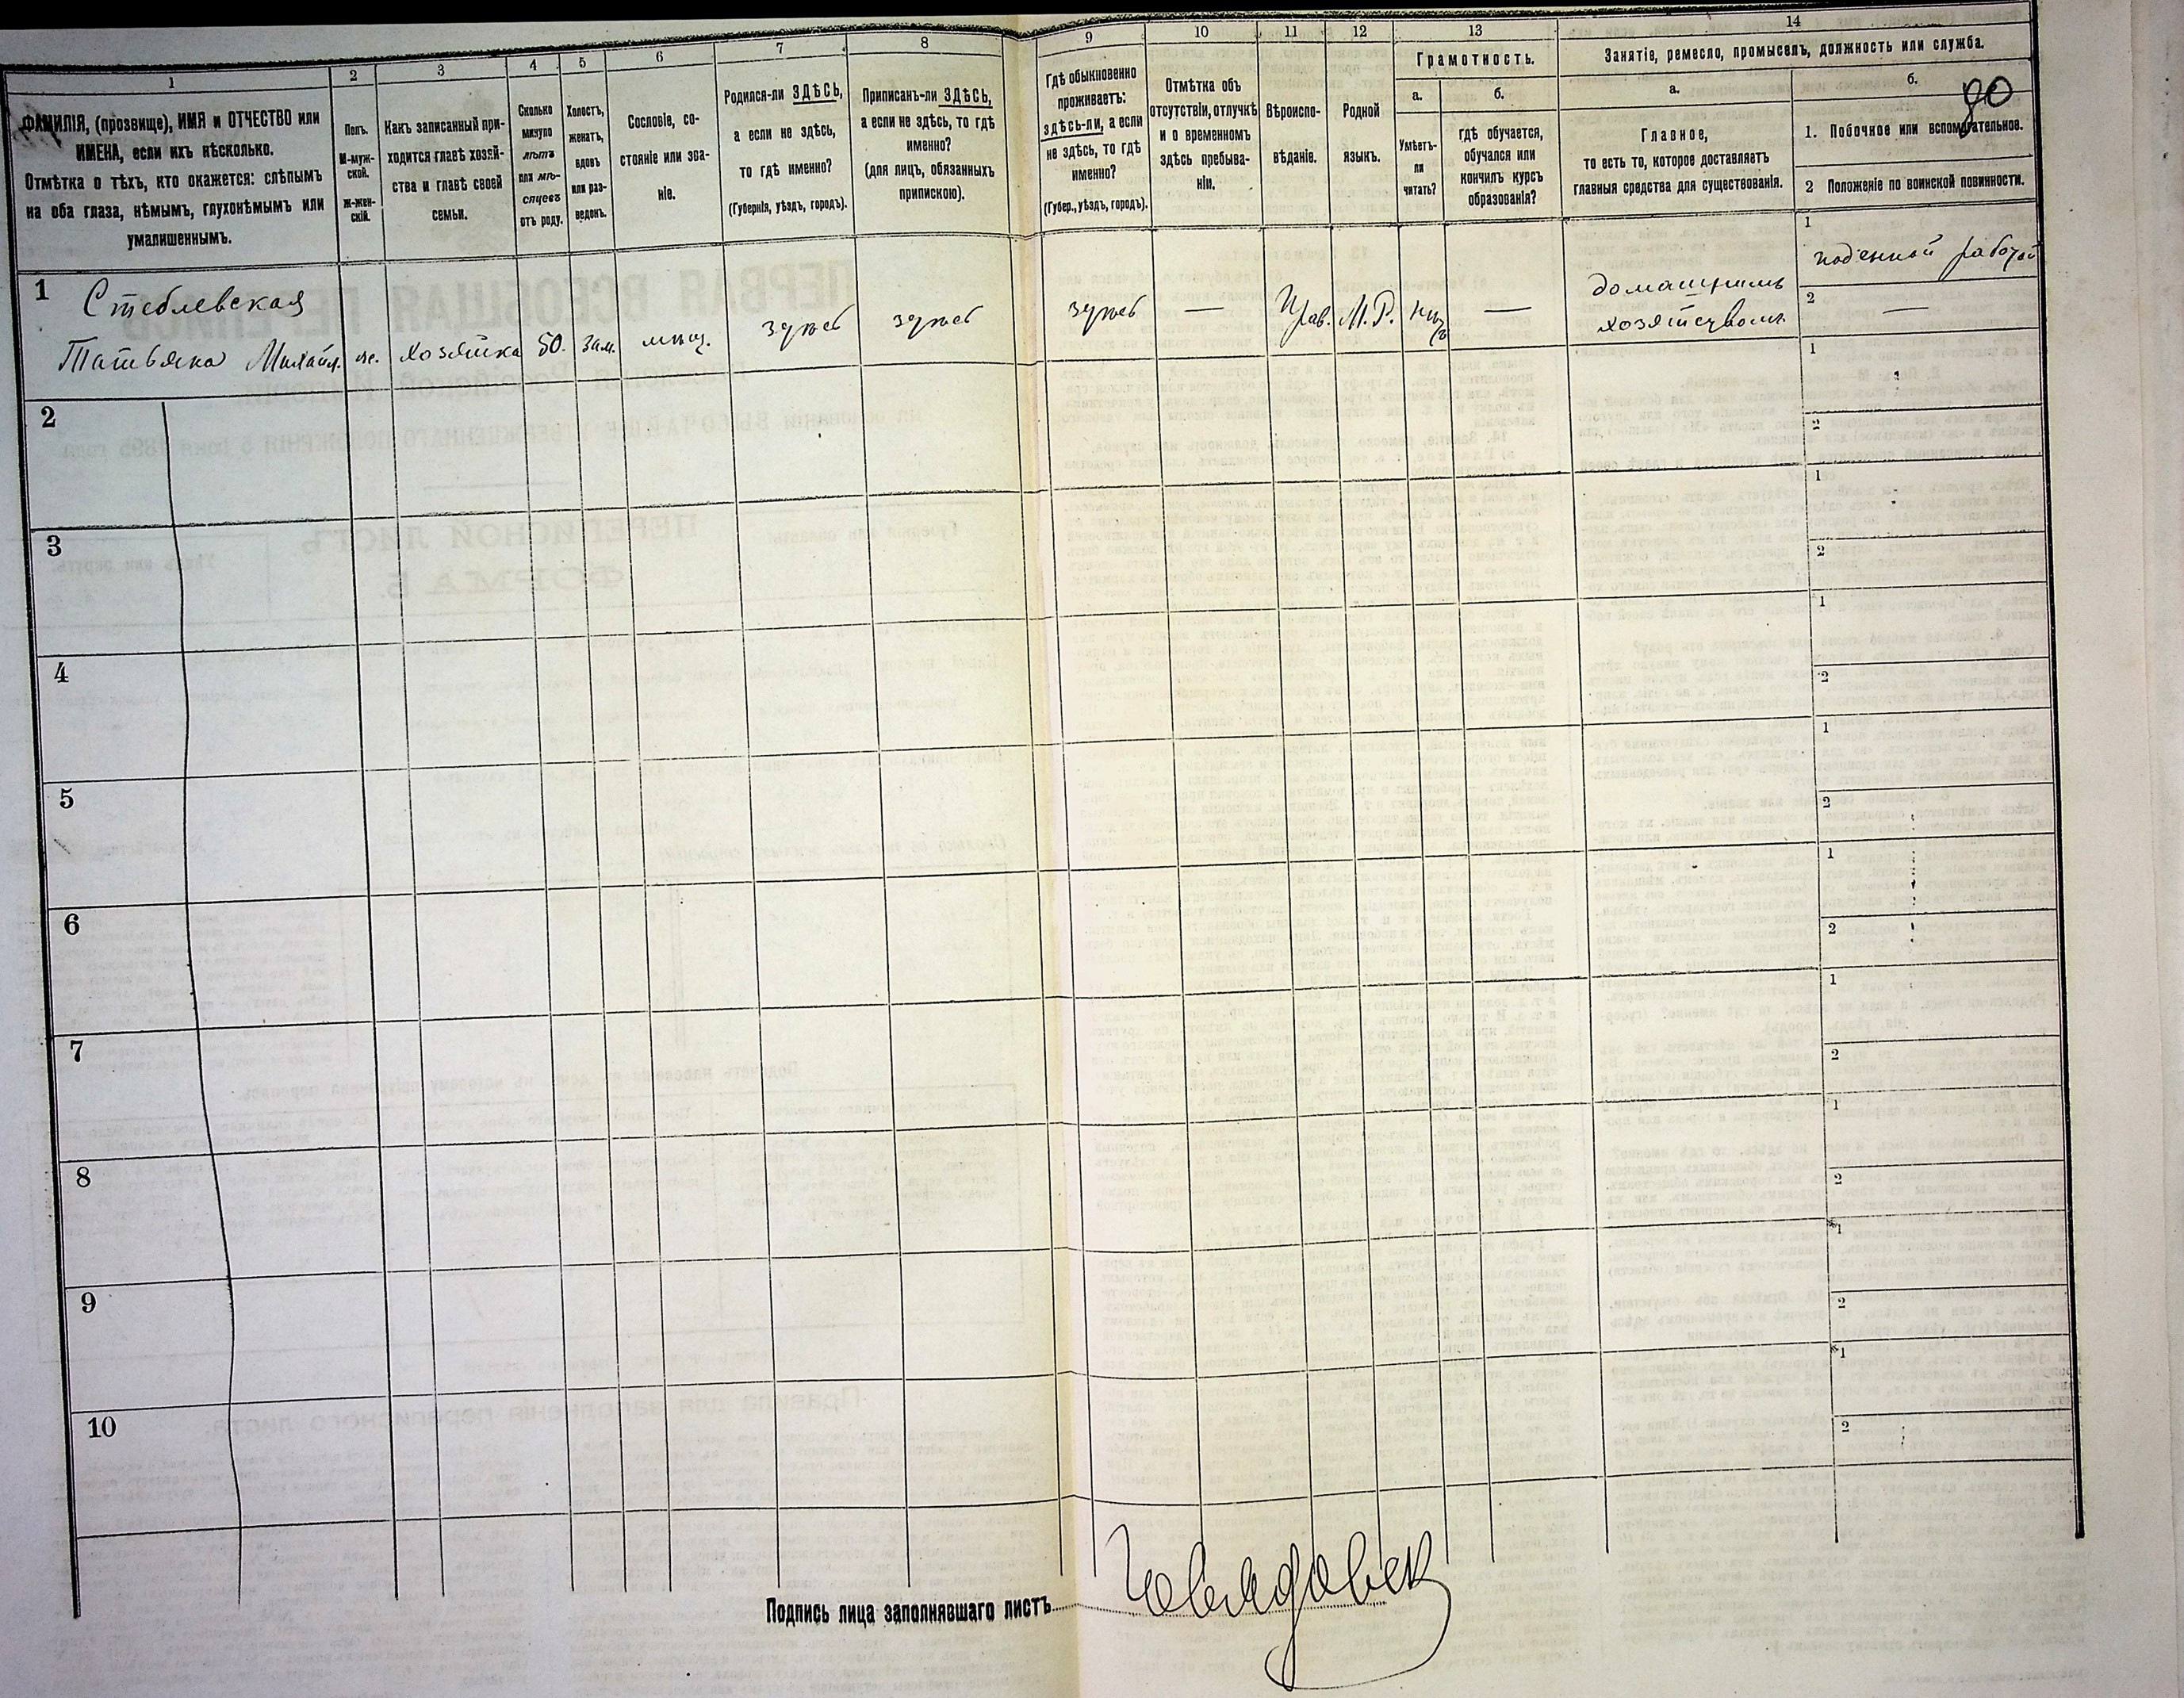 1
2
3
4
5
6
7
8
9
10
11
12
13
14
ФАМИЛІЯ, (прозвище), ИМЯ и ОТЧЕСТВО или
ИМЕНА, если ихъ нѣсколько.
Отмѣтка о тѣхъ, кто окажется: слѣпымъ
на оба глаза, нѣмымъ, глухонѣмымъ или
умалишеннымъ.
Полъ.
М-муж-
ской.
Ж-жен-
скій.
Какъ записанный при-
ходится главѣ хозяй-
ства и главѣ своей
семьи.
Сколько
минуло
лѣтъ
или мѣ-
сяцевъ
отъ роду.
Холостъ,
женатъ,
вдовъ
или раз-
веденъ.
Сословіе, со-
стояніе или зва-
ніе.
Родился-ли ЗДѢСЬ,
а если не здѣсь,
то гдѣ именно?
(Губернія, уѣздъ, городъ).
Приписанъ-ли ЗДѢСЬ,
а если не здѣсь, то гдѣ
именно?
(для лицъ, обязанныхъ
припискою).
Гдѣ обыкновенно
проживаетъ:
здѣсь-ли, а если
не здѣсь, то гдѣ
именно?
(Губер., уѣздъ, городъ).
Отмѣтка объ
отсутствіи, отлучкѣ
и о временномъ
здѣсь пребыва-
ніи.
Вѣроиспо-
вѣданіе.
Родной
языкъ.
Грамотность.
а.
Умѣетъ-
ли
читать?
б.
гдѣ обучается,
обучался или
кончилъ курсъ
образованія?
Занятіе, ремесло, промыселъ, должность или служба.
а.
Главное,
то есть то, которое доставляетъ
главныя средства для существованія.
б.
90
1. Побочное или вспомагательное.
2 Положеніе по воинской повинности.
1
Стеблевская
Татьяна Михайл.
ж.
хозяйка
50.
зам.
мѣщ.
здѣсь
здѣсь
здѣсь
—
Прав.
М.Р.
нѣтъ
—
домашнимъ
хозяйствомъ
1
поденной работой
2
—
2
1
2
3
1
2
4
1
2
5
1
2
6
1
2
7
1
2
8
1
2
9
1
2
10
1
2
Подпись лица заполнявшаго листъ